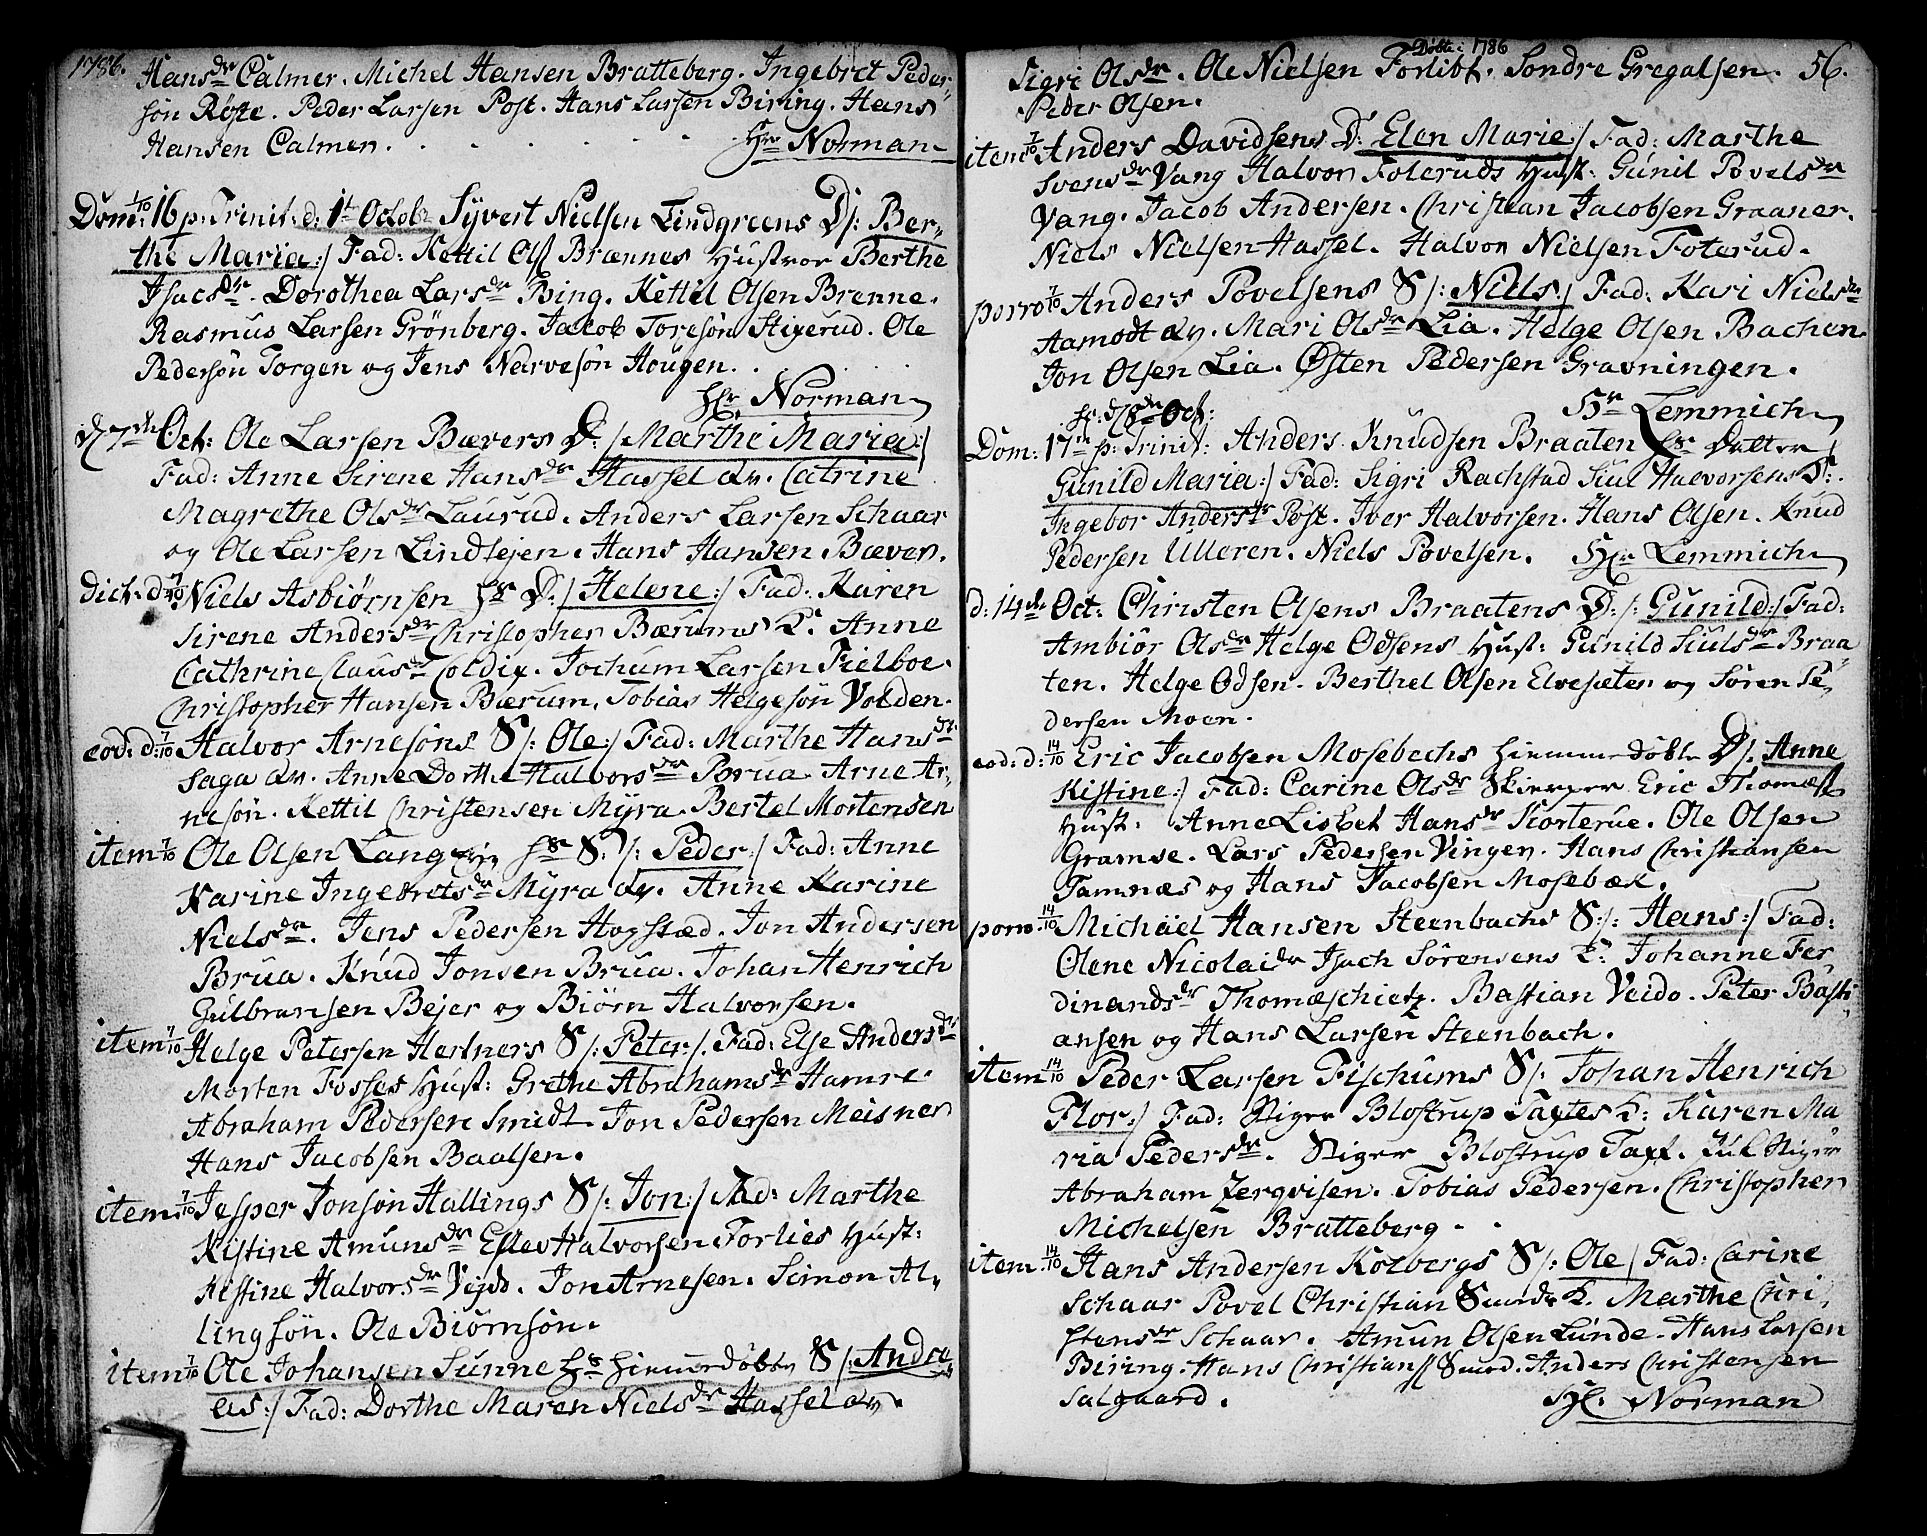 1786.
Hansdr Calmer. Michel Hansen Bratteberg. Ingebret Peder-
søn Røste. Peder Larsen Post. Hans Larsen Biring. Hans
Hansen Calmer. . . . . . . Hr Norman
Dom: 1/10 16 p: Trinit: d: 1t Octob: Syvert Nielsen Lindgreens D/: Ber-
the Maria:/ Fad: Kettil Ols Brænnes Hustroe Berthe
Isacsdr. Dorothea Larsdr Bing. Kettil Olsen Brenne.
Rasmus Larsen Grønberg. Jacob Toresøn Stigerud. Ole
Pedersøn Torgen og Jens Narvesøn Hougen. .
Hr Norman
d 7de Oct: Ole Larsen Bævers D: /Marthe Maria:/
Fad: Anne Sirene Hansdr Hassel dn. Catrine
Magrethe Olsdr Laurud. Anders Larsen Schaar
og Ole Larsen Lindlejen. Hans Hansen Bæver.
dict. d: 7/10 Niels Asbiørnsen D:/ Helene:/ Fad: Karen
Sirene Andersdr Christopher Bærums K: Anne
Cathrine Clausdr Coldix. Jochum Larsen Fielboe.
Christopher Hansen Bærum. Tobias Helgesøn Volden.
eod: d: 7/10 Halvor Arnesøns S/: Ole:/ Fad: Marthe Hansdr
Saga dn. Anne Dorthe Halvorsdr Brua Arne Ar-
nesøn. Kettil Christensen Myra. Bertel Mortensen
item 7/10 Ole Olsen Lang S:/: Peder:/ Fad: Anne
Karine Ingebretsdr Myra dn. Anne Karine
Nielsdr. Jens Pedersen Hogstæd. Jon Andersen
Brua. Knud Jonsen Brua. Johan Henrich
Gulbransen Bejer og Biørn Halvorsen.
item 7/10 Helge Petersen Hertners S/: Peter:/. Fad: Else Andersdr
Morten Fosses Hust: Grethe Abrahamsdr Hamre.
Abraham Pedersen Smidt Jon Pedersen Meisner
Hans Jacobsen Baalsen.
item 7/10 Jesper Jonsøn Hallings S/: Jon:/ Fad: Marthe
Kistine Amunsdr Ellev Halvorsen Forlies Hust:
Kistine Halvorsdr Vejdd. Jon Arnesen. Simon Al-
lingsøn. Ole Biørnsøn.
item 7/10 Ole Johansen Sunne hiemmedøbte S/: Andre
as:/ Fad: Dorthe Maren Nielsdr Hassel dn.
Døbte: 1786
56.
Sigri Olsdr. Ole Nielsen Forlibt. Sondre Gregalsen.
Peder Olsen.
item 7/10 Anders Davidsens D: Elen Marie:/ Fad: Marthe
Svensdr Vang Halvor Foleruds Hust: Gunil Povelsdr
Vang. Jacob Andersen. Christian Jacobsen Graaner.
Niels Nielsen Hassel. Halvor Nielsen Foterud.
porro 7/10 Anders Povelsens S/: Niels:/ Fad: Kari Nielsdr
Aamodt dn. Mari Olsdr Lia. Helge Olsen Bachen
Jon Olsen Lia. Østen Pedersen Gravningen.
d 8de Oct: Hr Lemmich
Dom: 17de p: Trinit: Anders Knudsen Braaten Datter
Gunild Maria:/ Fad: Sigri Rachstad Siul Halvorsens D:.
Ingebor Andersdr Post. Iver Halvorsen. Hans Olsen. Knud
Pedersen Ulleren. Niels Povelsen. Hr Lemmich
d: 14de Oct: Christen Olsens Braatens D:/: Gunild:/ Fad:
Ambiør Olsdr Helge Odsens Hust: Gunild Siulsdr Braa
ten. Helge Odsen. Berthel Olsen Elvesæter og Søren Pe-
dersen Moen.
eod: d: 14/10 Eric Jacobsen Mosebechs hiemmedøbte D/. Anne
Kistine:/ Fad: Carine Olsdr Skierper Eric Thomæs
Hust. Anne Lisbet Hansdr Korterue. Ole Olsen
Gramse. Lars Pedersen Vingen. Hans Christiansen
Tamnæs og Hans Jacobsen Mosebæk.
porro. 14/10 Michäel Hansen Steenbachs S:/: Hans:/ Fad:
Olene Nicolaidr Isach Sørensens K: Johanne Fer
dinandsdr Thomæschietz. Bastian Veido. Peter Basti
ansen og Hans Larsen Steenbach.
item 14/10 Peder Larsen Fischums S/: Johan Henrich
Flor:/ Fad: Stiger Blostrup Taxtes K: Karen Ma
ria Pedersdr. Stiger Blostrup Taxt. Jul Stiger
Abraham Zerqvisen. Tobias Pedersen. Christopher
Michelsen Bratteberg. .
item. 14/10 Hans Andersen Kolbergs S/: Ole/ Fad: Carine
Schaar Povel Christian K. Marthe Chri
stensdr Schaar. Amun Olsen Lunde. Hans Larsen
Biring. Hans Christians Anders Christensen
Salgaard. Hr. Norman